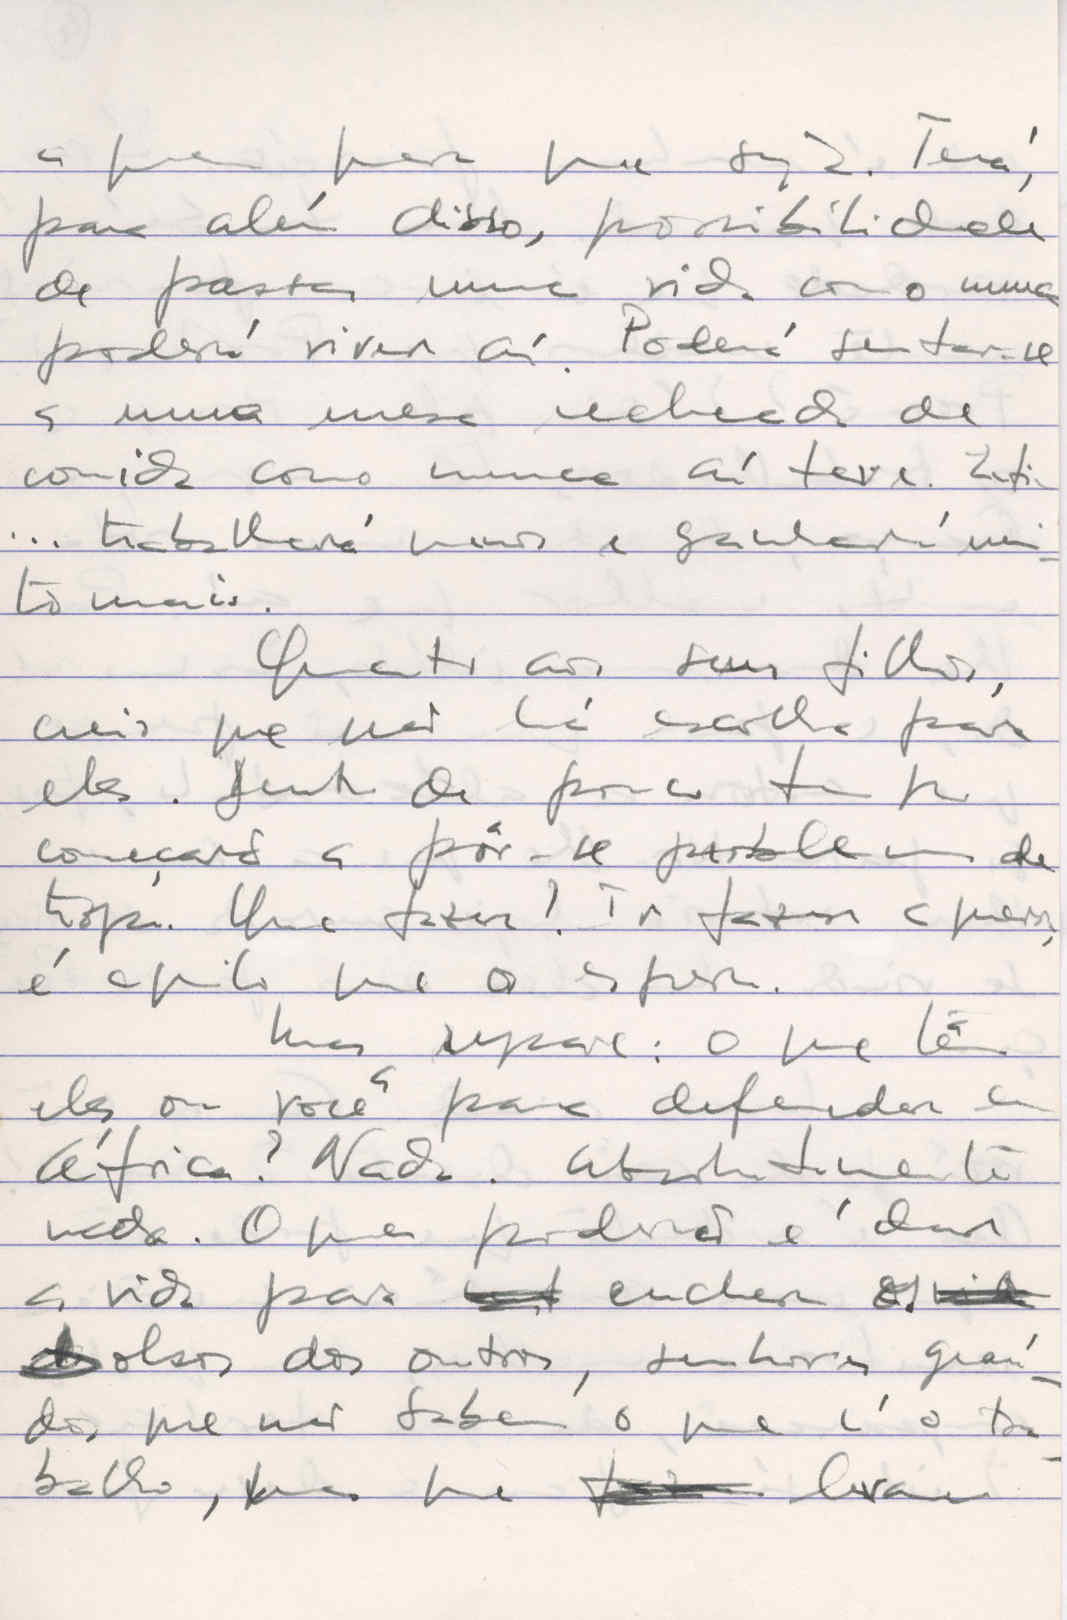 a quem quer que seja. Terá,
para além disso, possibilidade
de passar uma vida como nunca
poderá viver aí. Poderá sentar-se
a uma mesa recheada de
comida como nunca aí teve. Enfim
... trabalhará menos e ganhará mui-
to mais.
Quanto aos seus filhos,
creio que não há escolha para
eles. Dentro de pouco tempo
começará a pôr-se problema da
tropa. Que fazer? Ir fazer a guerra,
é aquilo que o espera.
Mas repare: o que têm
eles ou você a para defender em
África? Nada. Absolutamente
nada. O que poderão é dar
a vida para encher os
bolsos dos outros, senhores graú-
dos, que não sabem o que é o tra-
balho, mas que levam